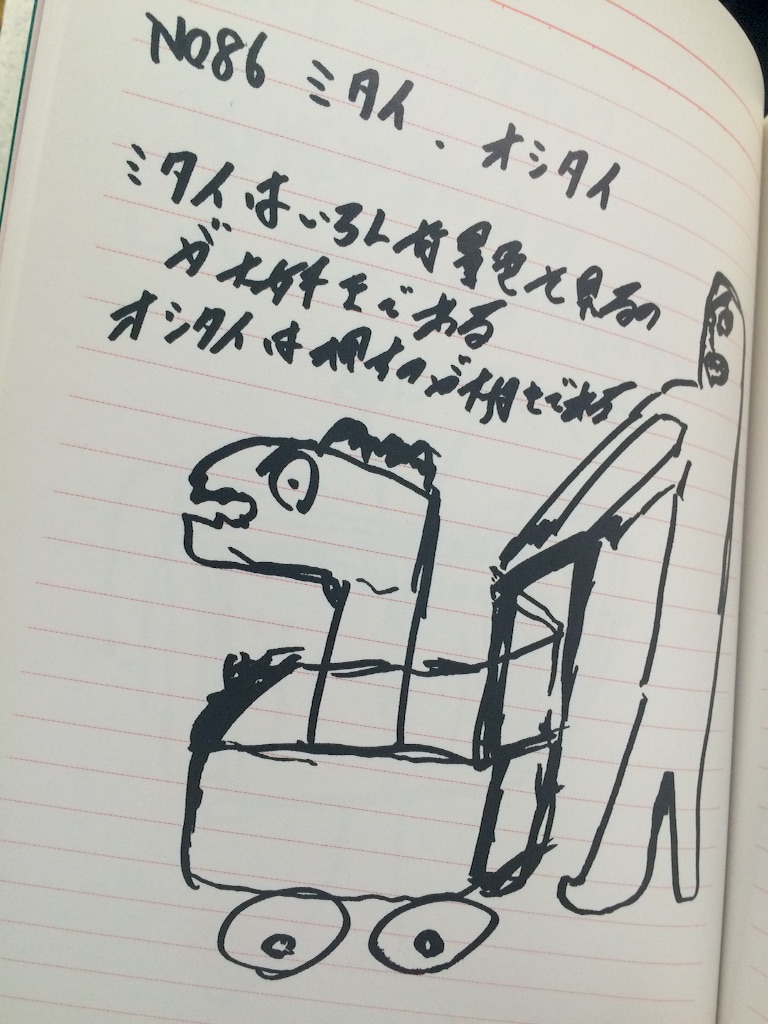 No86 ミタイ.オシタイ
ミタイはいろんな景色を見るの
が大好きである
オシタイは押すのが好きである